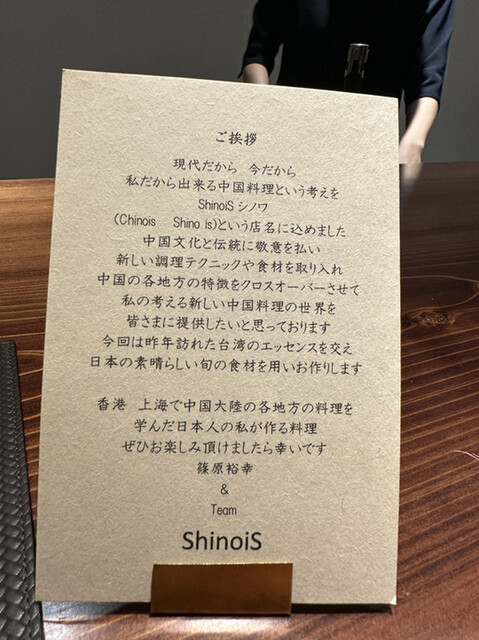 ご挨拶
現代だから 今だから
私だから出来る中国料理という考えを
ShinoiS シノワ
(Chinois Shino is)という店名に込めました
中国文化と伝統に敬意を払い
新しい調理テクニックや食材を取り入れ
中国の各地方の特徴をクロスオーバーさせて
私の考える新しい中国料理の世界を
皆さまに提供したいと思っております
今回は昨年訪れた台湾のエッセンスを交え
日本の素晴らしい旬の食材を用いお作りします
香港 上海で中国大陸の各地方の料理を
学んだ日本人の私が作る料理
ぜひお楽しみ頂けましたら幸いです
篠原裕幸
&
Team
ShinoiS